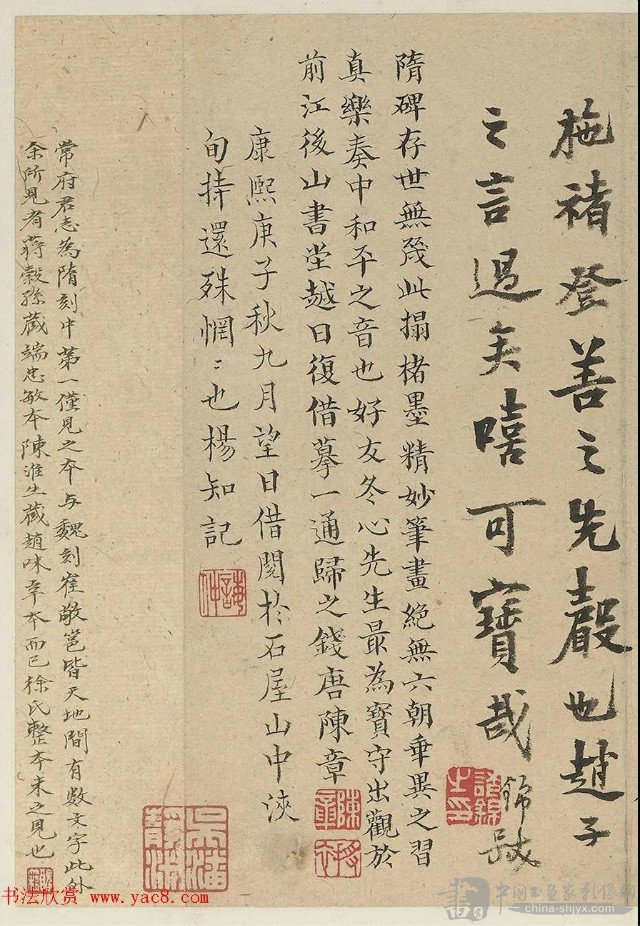 拖褚登善之先聲也趙子
之言過矣嘻可寶哉 錦誠
隋碑存世無幾此搨楮墨精妙筆畫絕無六朝乖異之習
真樂奏中和平之音也好友冬心先生最為寶守出觀於
前江後山書堂越日復借摹一通歸之錢唐陳章
康熙庚子秋九月望日借閱於石屋山中浹
旬持還殊惘〻也楊知記
常府君志為隋刻中第一僅見之本与魏刻崔敬邕皆天地間有數文字此外
余所見者蔣穀孫藏端忠敏本陳淮生藏趙味辛本而已徐氏整本未之見也
吳潘靜淑
书法欣赏 www.yac8.com
china-shnjyx.com